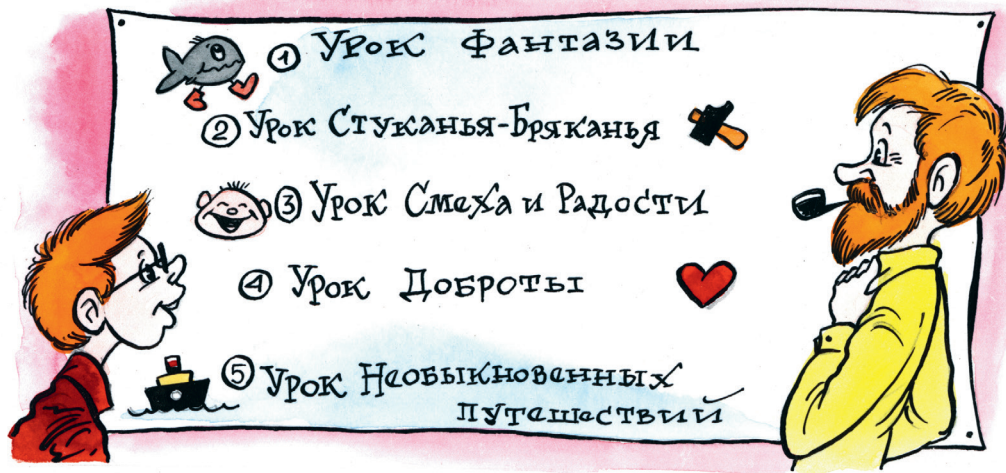 1 Урок Фантазии
2 Урок Стуканья-Бряканья
3 Урок Смеха и Радости
4 Урок Доброты
5 Урок Необыкновенных
путешествий